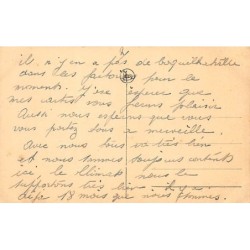 il n'y en a pas de
dans les pour le
moment. J'ose espérer que
mes cartes vous feront plaisir
Aussi nous espérons que vous
vous portez tous à merveille.
Avec nous tous va très bien
et nous sommes toujours contents
ici le climat nous le
supportons très bien. il y a
déjà 18 mois que nous sommes.